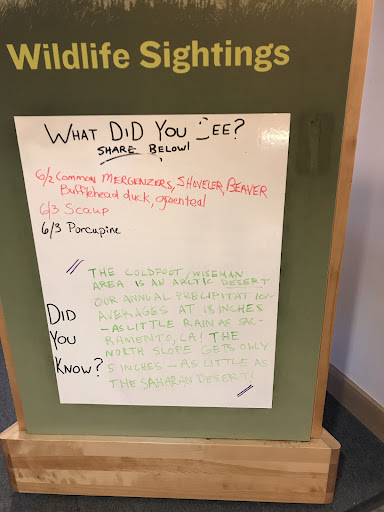 Wildlife Sightings
WHAT DID YOU SEE?
SHARE BELOW!
6/2 Common MERGENZERS, SHOVELER, BEAVER
Bufflehead duck, g teal
6/3 Scaup
6/3 Porcupine
THE COLDFOOT/WISEMAN
AREA IS AN ARCTIC DESERT
OUR ANNUAL PRECIPITATION
AVERAGES AT 18 INCHES
-AS LITTLE RAIN AS SAC-
RAMENTO, CA! THE
NORTH SLOPE GETS ONLY
5 INCHES - AS LITTLE AS
THE SAHARAN DESERT!
DID
YOU
KNOW?